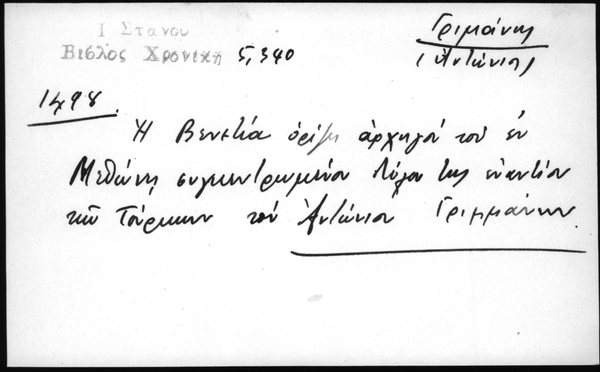 Ι Στανου
Βιβλος Χρονικη 5, 340
Γριμάνης
(Αντώνιος)
1498.
Η Βενετία ορίζει αρχηγόν του εν
Μεθώνη συγκεντρωμένου στόλου της εναντίον
των Τούρκων τον Αντώνιον Γριμμάνην.